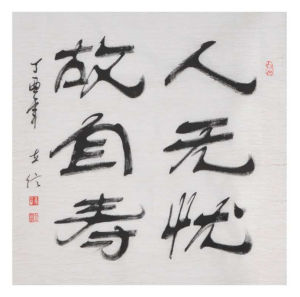 人无忧
故自寿
丁酉年 立信